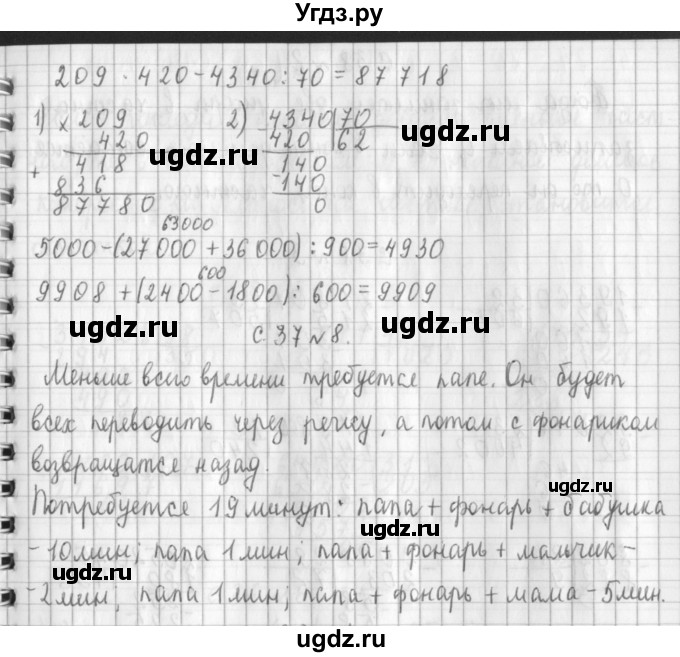 Угдз.ру
209 · 420 - 4340 : 70 = 87718
1) × 209 2) - 4340 | 70
420 420 62
+ 418 140
836 - 140
87780 0
63000
5000 - (27000 + 36000) : 900 = 4930
600
9908 + (2400 - 1800) : 600 = 9909
с 37 № 8.
Меньше всего времени требуется папе. Он будет
всех переводить через речку, а потом с фонариком
возвращатся назад.
Потребуется 19 минут: папа + фонарь + бабушка
- 10 мин; папа 1 мин; папа + фонарь + мальчик -
- 2 мин; папа 1 мин; папа + фонарь + мама - 5 мин.
ugdz.ru
ugdz.ru
ugdz.ru
ugdz.ru
ugdz.ru
ugdz.ru
ugdz.ru
ugdz.ru
ugdz.ru